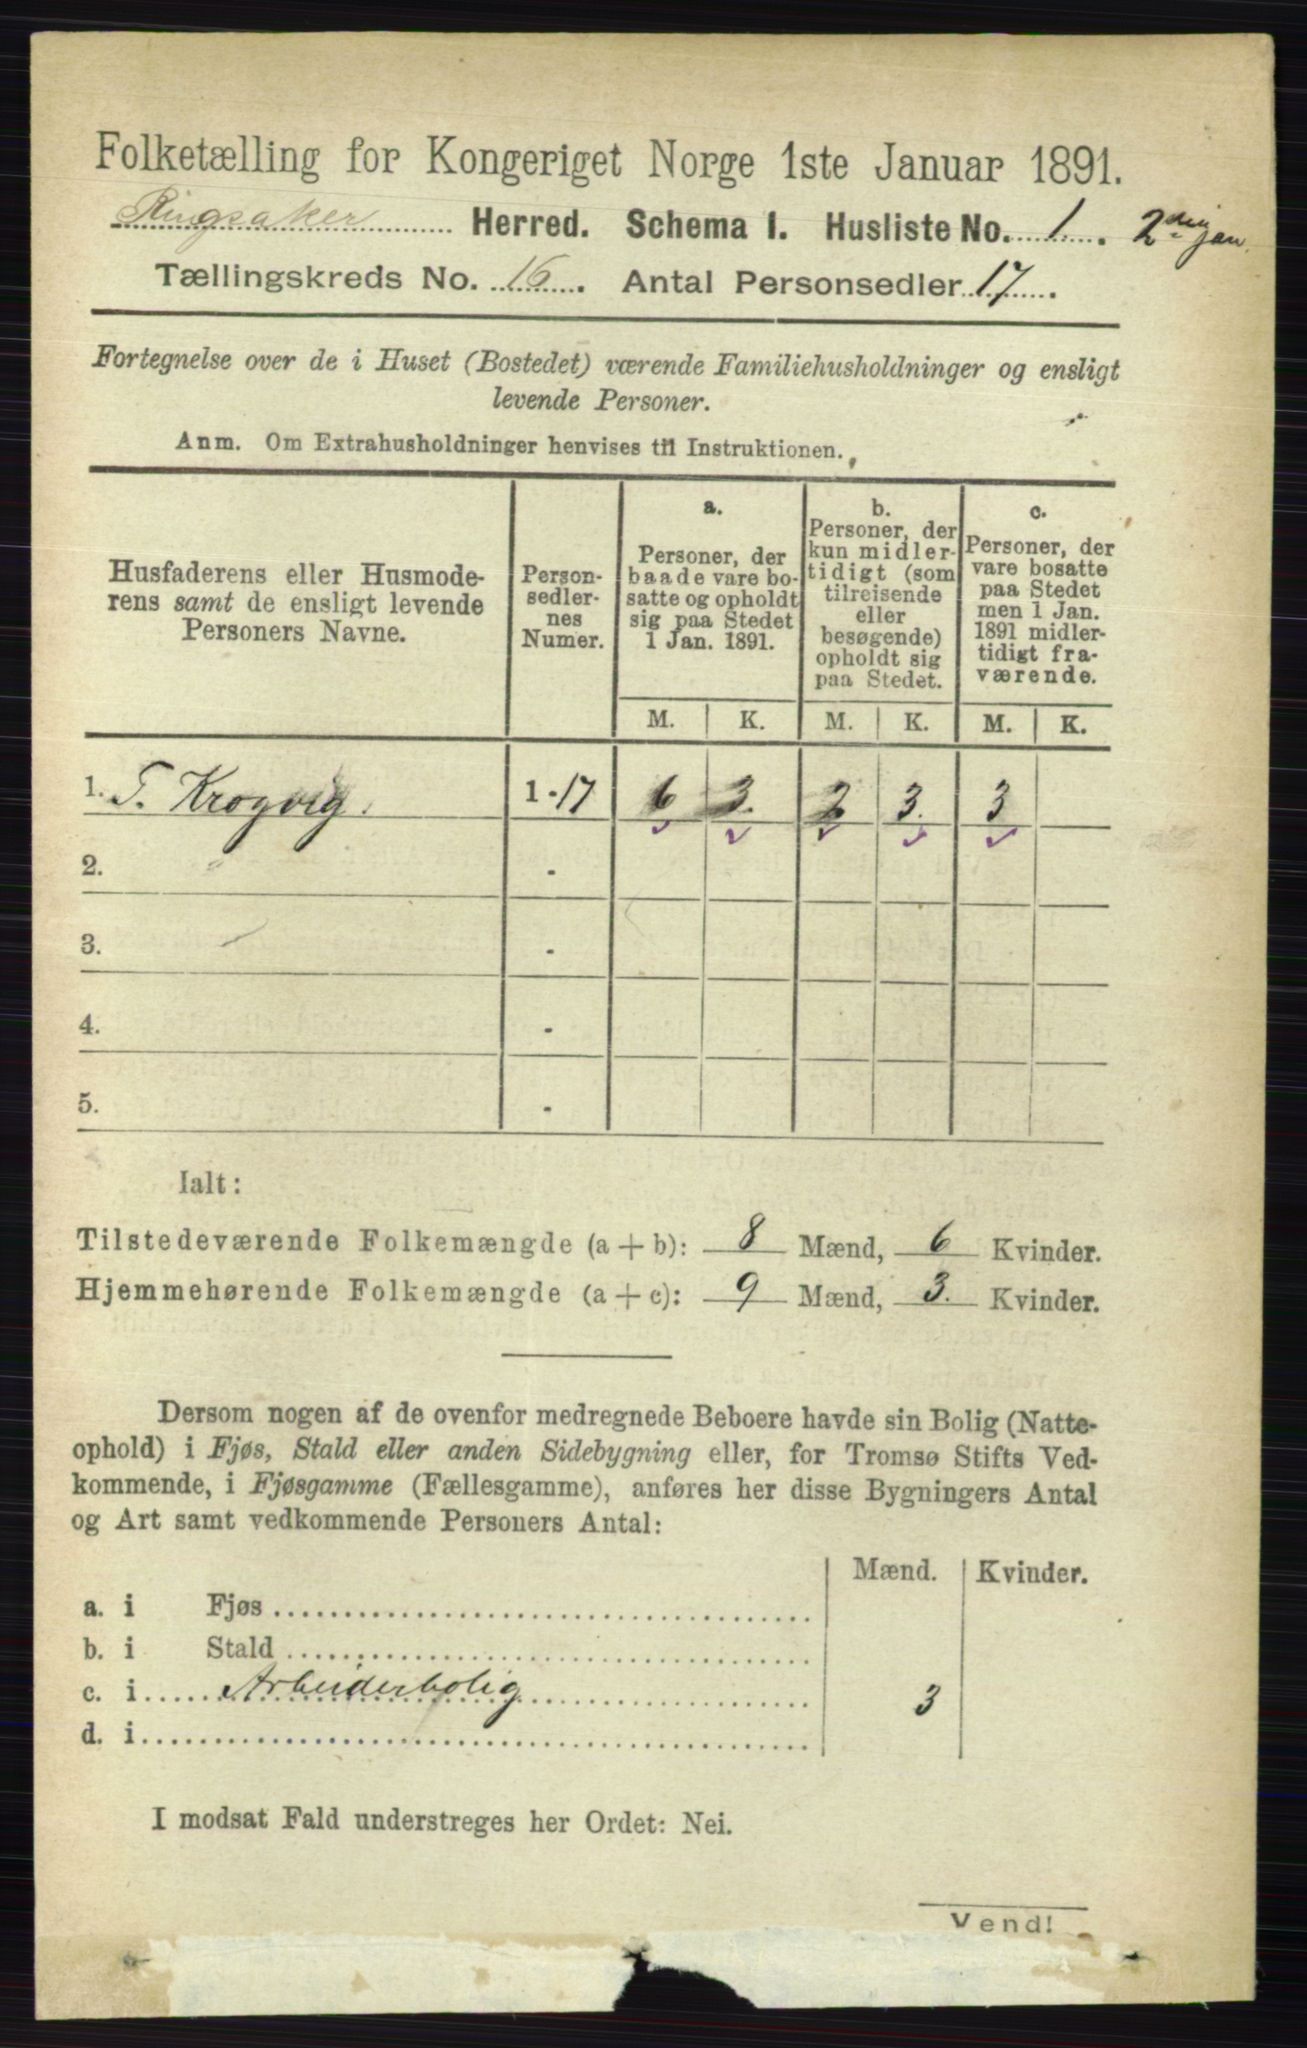 Folketælling for Kongeriget Norge 1ste Januar 1891.
Ringsaker Herred. Schema I. Husliste No. 1. 2den jan.
Tællingskreds No. 16. Antal Personsedler 17.
Fortegnelse over de i Huset (Bostedet) værende Familiehusholdninger og ensligt
levende Personer.
Anm. Om Extrahusholdninger henvises til Instruktionen.
Husfaderens eller Husmode-
rens samt de ensligt levende
Personers Navne.
Person-
sedler-
nes
Numer.
a.
Personer, der
baade vare bo-
satte og opholdt
sig paa Stedet
1 Jan. 1891.
b.
Personer, der
kun midler-
tidigt (som
tilreisende
eller
besøgende)
opholdt sig
paa Stedet.
c.
Personer, der
vare bosatte
paa Stedet
men 1 Jan.
1891 midler-
tidigt fra-
værende.
M. K. M. K. M. K.
1. T. Krogvig. 1-17 6 3. 2 3. 3
2. -
3. -
4. -
5. -
Ialt:
Tilstedeværende Folkemængde (a + b): 8 Mænd, 6 Kvinder.
Hjemmehørende Folkemængde (a + c): 9 Mænd, 3. Kvinder.
Dersom nogen af de ovenfor medregnede Beboere havde sin Bolig (Natte-
ophold) i Fjøs, Stald eller anden Sidebygning eller, for Tromsø Stifts Ved-
kommende, i Fjøsgamme (Fællesgamme), anføres her disse Bygningers Antal
og Art samt vedkommende Personers Antal:
Mænd. Kvinder.
a. i Fjøs
b. i Stald
c. i Arbeiderbolig 3
d. i
I modsat Fald understreges her Ordet: Nei.
Vend!